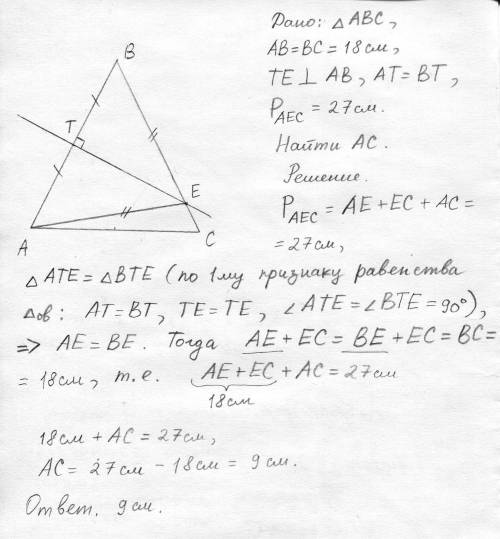 B
T
E
A
C
Дано: △ABC,
AB=BC=18см,
TE⊥AB, AT=BT,
P_AEC = 27см.
Найти AC.
Решение.
P_AEC = AE+EC+AC=
=27см,
△ATE=△BTE (по 1му признаку равенства
△ов: AT=BT, TE=TE, ∠ATE=∠BTE=90°),
=> AE=BE. Тогда AE+EC=BE+EC=BC=
= 18см, т.е. AE+EC+AC=27см
18см
18см+AC=27см,
AC= 27см - 18см = 9см.
Ответ. 9см.